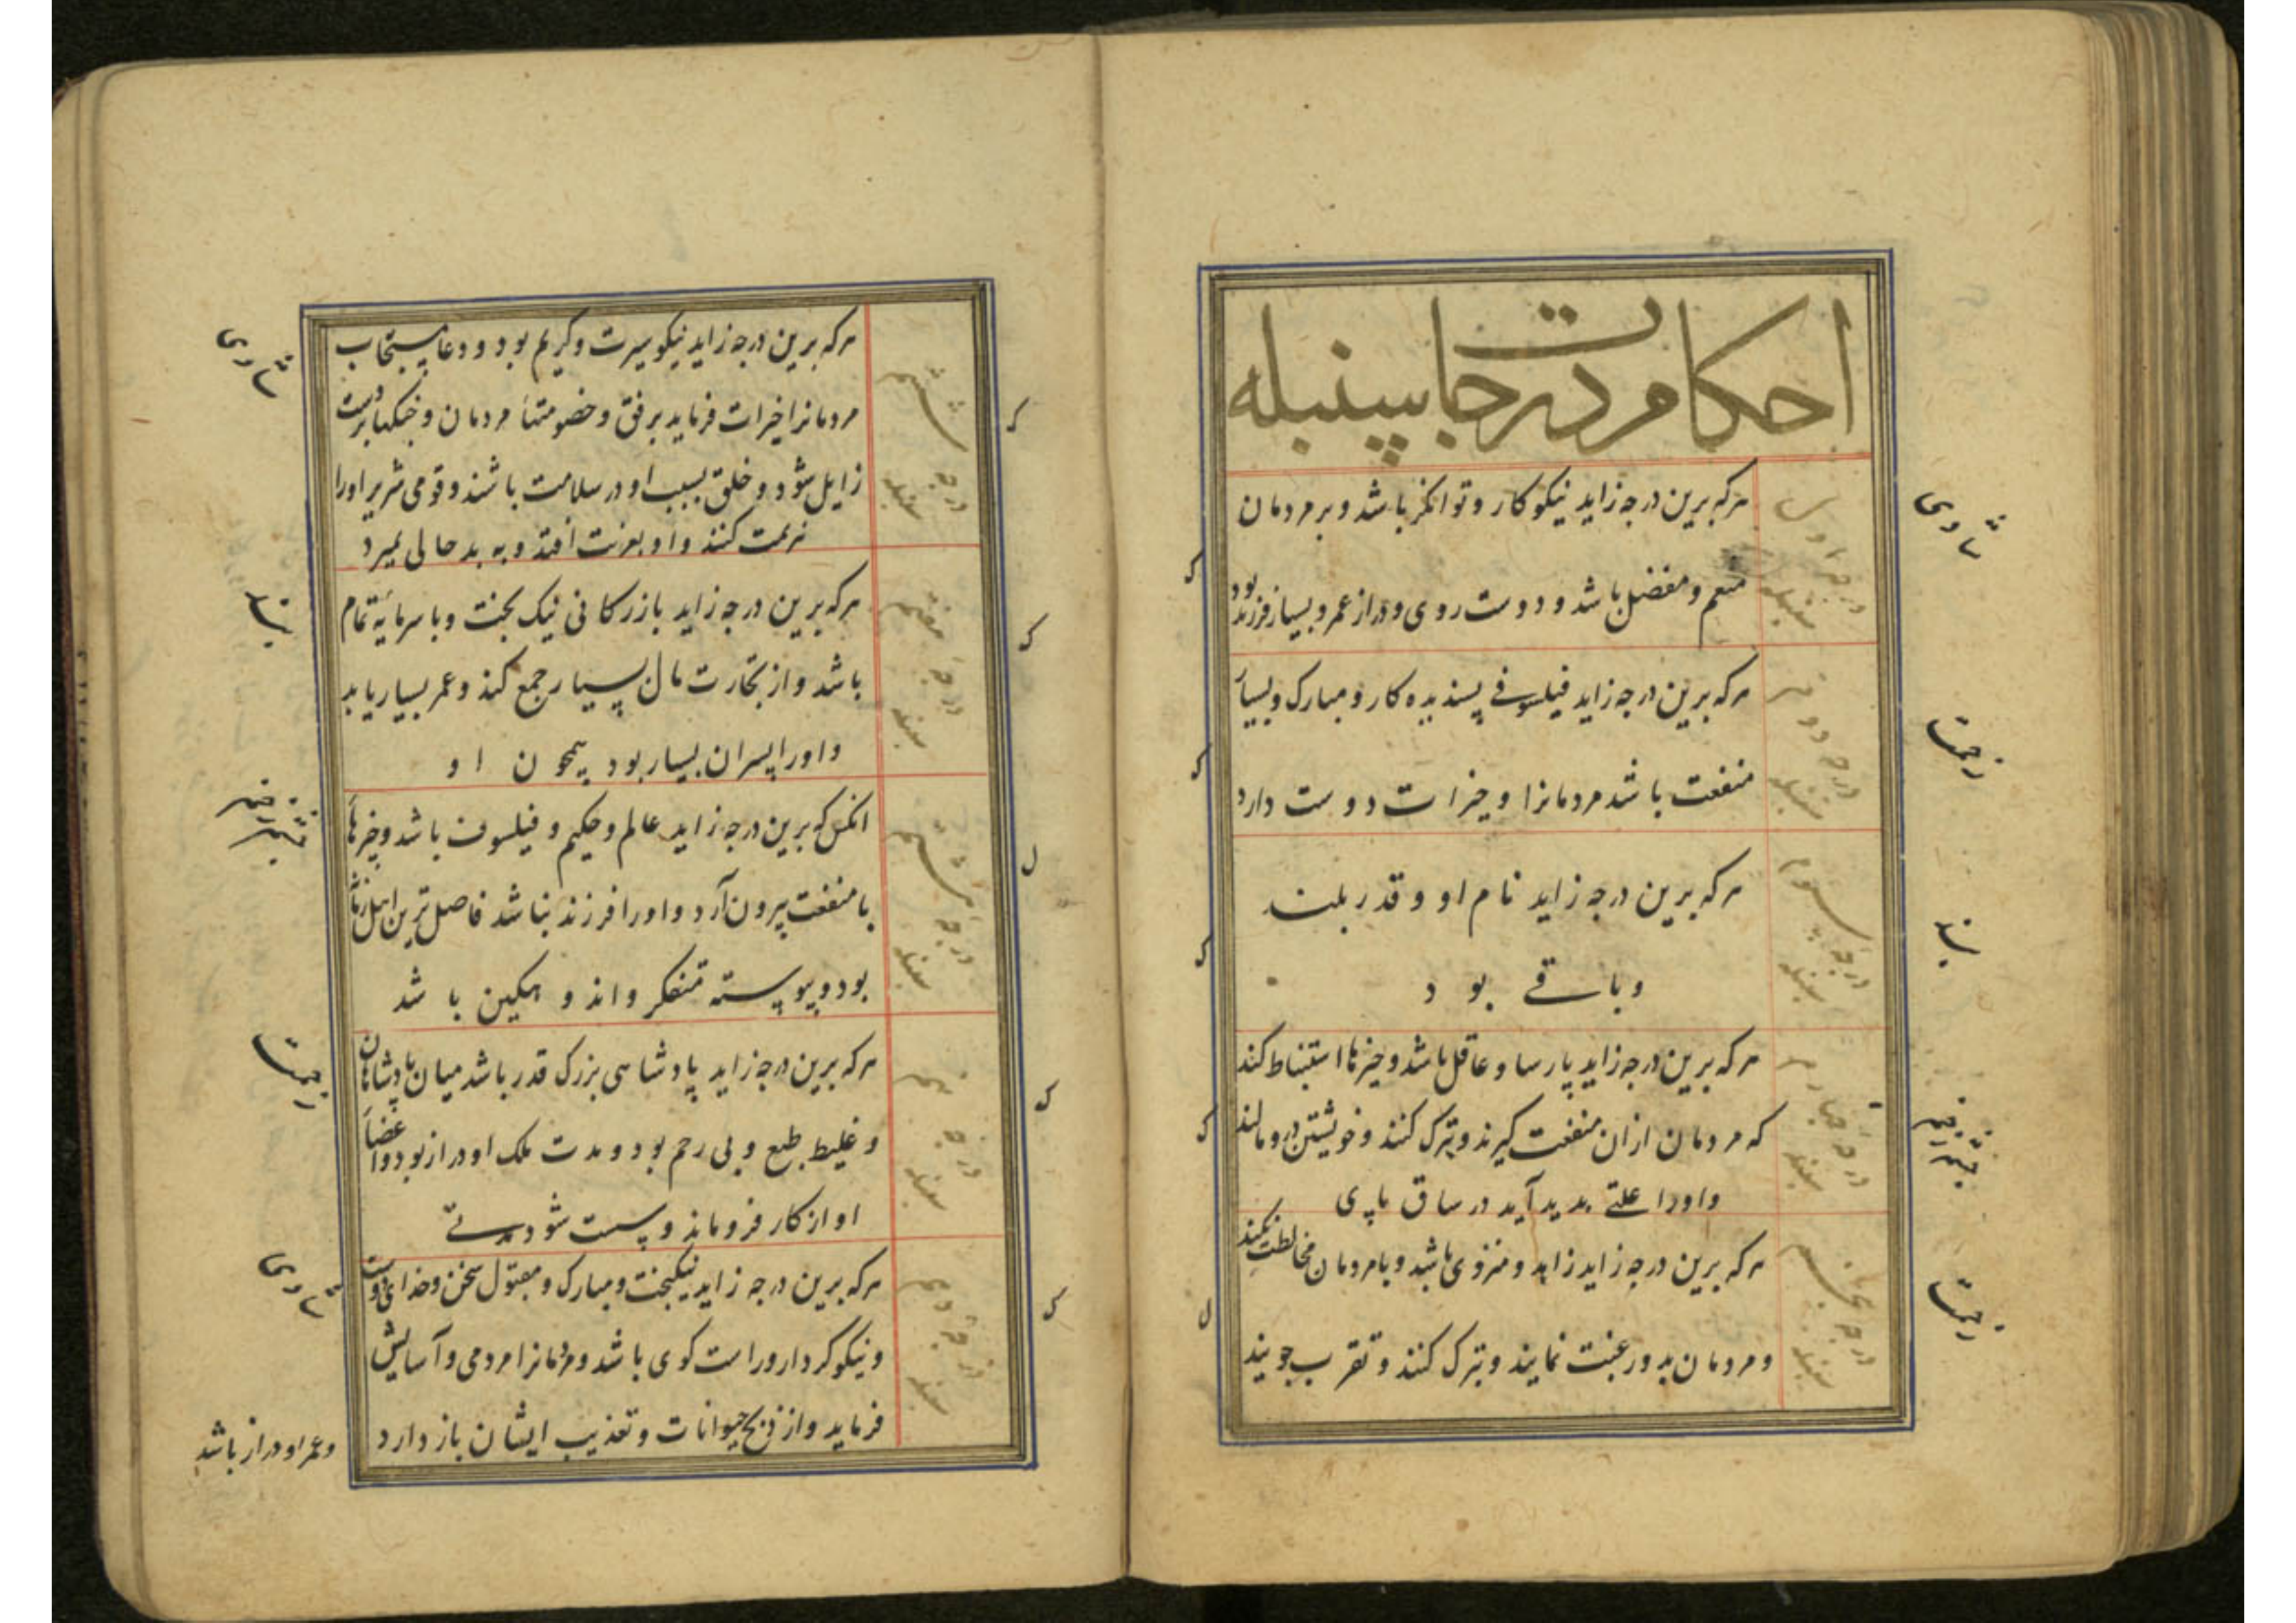 احکام درجات سنبله
درجه اول
سنبله
هرکه برین درجه زاید نیکوکار و توانگر باشد و بر مردمان
منعم و مفضل باشد و دوست روی و دراز عمر و بسیار فرزند بود
درجه دوم
سنبله
هرکه برین درجه زاید فیلسوفی پسندیده کار و مبارک و بسیار
منفعت باشد مردمانرا و خیرات دوست دارد
درجه سوم
سنبله
هرکه برین درجه زاید نام او و قدر بلند
و باقی بود
درجه چهارم
سنبله
هرکه برین درجه زاید پارسا و عاقل باشد و چیزها استنباط کند
که مردمان ازان منفعت گیرند و تبرک کنند و خویشتن درو مالند
و اورا علتی بدید آید در ساق پای
درجه پنجم
سنبله
هرکه برین درجه زاید زاهد و منزوی باشد و با مردمان مخالطت نکند
و مردمان بدو رغبت نمایند و تبرک کنند و تقرب جویند
ششم
درجه
سنبله
هرکه برین درجه زاید نیکو سیرت و کریم بود و دعا مستجاب
مردمانرا خیرات فرماید برفق و خصومتها مردمان و جنگها بر دست
زایل شود و خلق بسبب او در سلامت باشند و قومی شریر اورا
کنند و او بغربت افتد و به بد حالی بمیرد
هفتم
درجه
سنبله
هرکه برین درجه زاید بازرگانی نیک بخت و با سرمایه تمام
باشد و از تجارت مال بسیار جمع کند و عمر بسیار یابد
و اورا پسران بسیار بود همچون او
هشتم
درجه
سنبله
انکس که برین درجه زاید عالم و حکیم و فیلسوف باشد و چیزها
با منفعت بیرون آرد و اورا فرزند نباشد فاضل ترین اهل زمانه
بود و پیوسته متفکر و اندوهگین باشد
نهم
درجه
سنبله
هرکه برین درجه زاید پادشاهی بزرگ قدر باشد میان پادشاهان
و غلیظ طبع و بی رحم بود و مدت ملک او دراز بود و اعضا
او از کار فروماند و سست شود مدتی
درجه دهم
سنبله
هرکه برین درجه زاید نیکبخت و مبارک و مقبول سخن و خدای دوست
و نیکو کردار و راست گوی باشد و مردمانرا مردمی و آسایش
فرماید و از ذبح حیوانات و تعذیب ایشان باز دارد
و عمر او دراز باشد